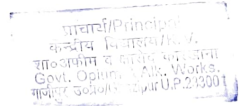 प्राचार्य/Principal
केन्द्रीय विद्यालय/K.V.
शा०अफीम व क्षारोद कारखाना
Govt. Opium & Alk. Works.
गाजीपुर उ०प्र०/ U.P.233001